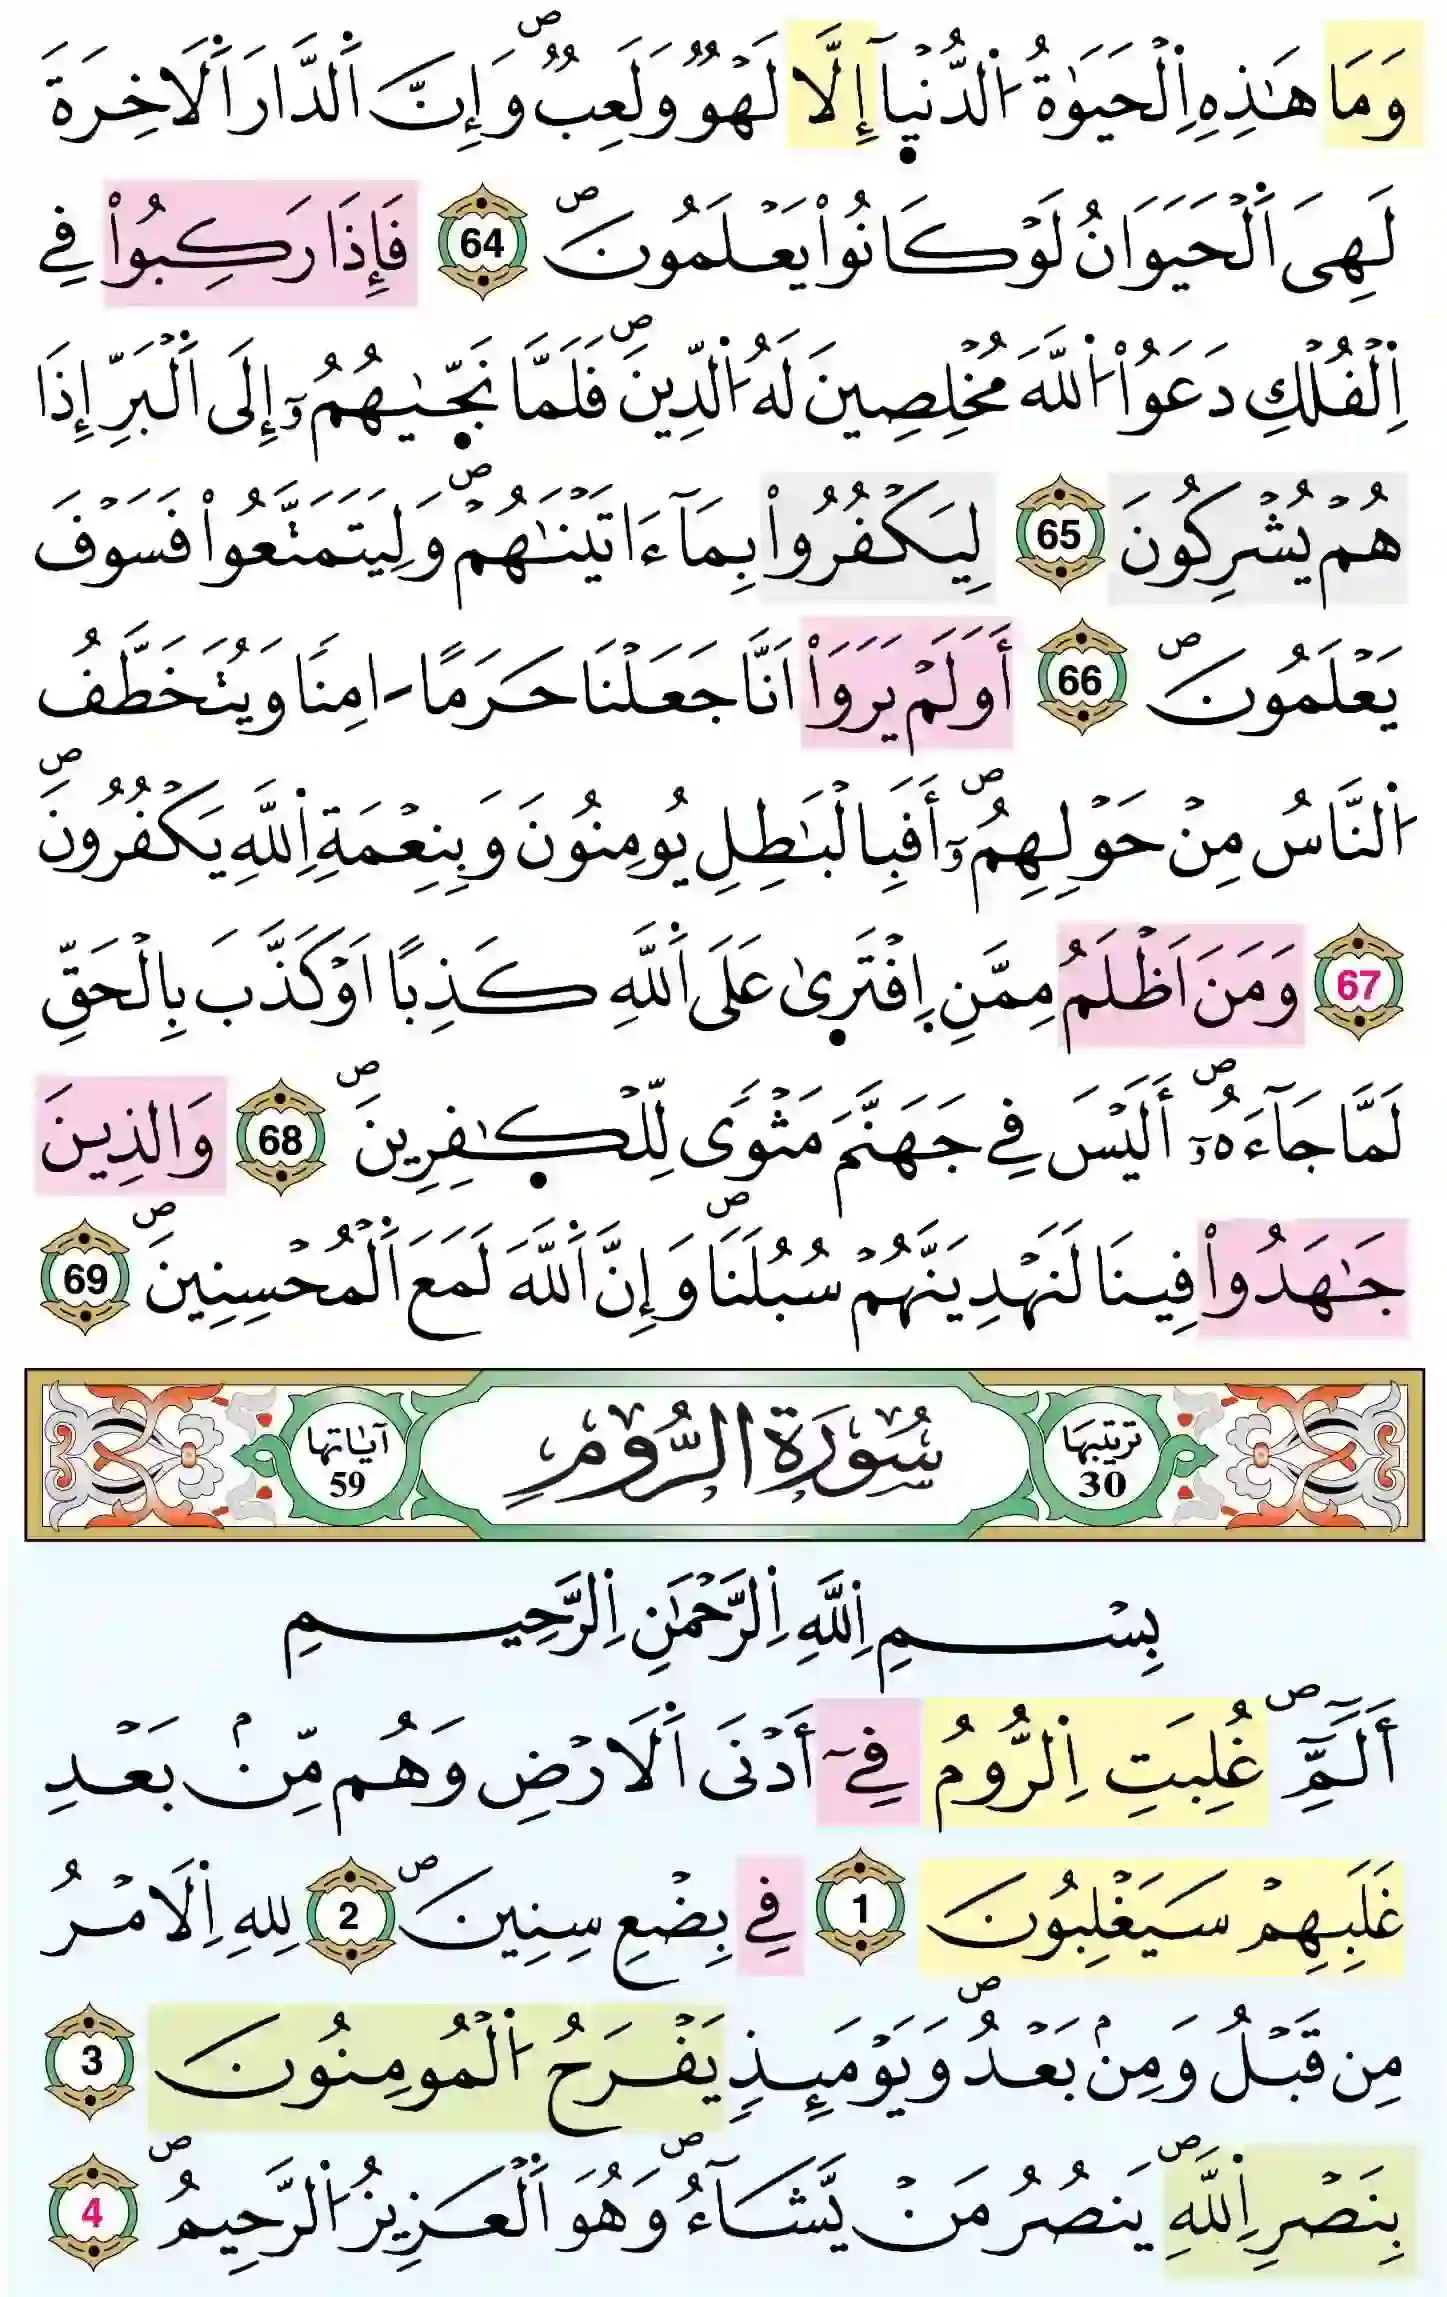 وَمَا هَٰذِهِ اِ۬لْحَيَوٰةُ اُ۬لدُّنْي۪آ إِلَّا لَهْوٞ وَلَعِبٞۖ وَإِنَّ اَ۬لدَّارَ اَ۬لَاخِرَةَ
لَهِيَ اَ۬لْحَيَوَانُ لَوْ كَانُواْ يَعْلَمُونَۖ 64 فَإِذَا رَكِبُواْ فِے
اِ۬لْفُلْكِ دَعَوُاْ اُ۬للَّهَ مُخْلِصِينَ لَهُ اُ۬لدِّينَۖ فَلَمَّا نَجّ۪يٰهُمُۥٓ إِلَى اَ۬لْبَرِّ إِذَا
هُمْ يُشْرِكُونَ 65 لِيَكْفُرُواْ بِمَآ ءَاتَيْنَٰهُمْۖ وَلِيَتَمَتَّعُواْ فَسَوْفَ
يَعْلَمُونَۖ 66 أَوَلَمْ يَرَوَاْ اَنَّا جَعَلْنَا حَرَماً اٰمِناٗ وَيُتَخَطَّفُ
اُ۬لنَّاسُ مِنْ حَوْلِهِمُۥٓۖ أَفَبِالْبَٰطِلِ يُومِنُونَ وَبِنِعْمَةِ اِ۬للَّهِ يَكْفُرُونَۖ
67 وَمَنَ اَظْلَمُ مِمَّنِ اِ۪فْتَر۪يٰ عَلَى اَ۬للَّهِ كَذِباً اَوْ كَذَّبَ بِالْحَقِّ
لَمَّا جَآءَهُۥٓۖ أَلَيْسَ فِے جَهَنَّمَ مَثْوٗي لِّلْكٰ۪فِرِينَۖ 68 وَالذِينَ
جَٰهَدُواْ فِينَا لَنَهْدِيَنَّهُمْ سُبُلَنَاۖ وَإِنَّ اَ۬للَّهَ لَمَعَ اَ۬لْمُحْسِنِينَۖ 69
ترتيبها 30 سُورَةُ الرُّومِ آياتها 59
بِسْمِ اِ۬للَّهِ اِ۬لرَّحْمَٰنِ اِ۬لرَّحِيمِ
أَلَٓمِّٓۖ غُلِبَتِ اِ۬لرُّومُ فِےٓ أَدْنَى اَ۬لَارْضِ وَهُم مِّنۢ بَعْدِ
غَلَبِهِمْ سَيَغْلِبُونَ 1 فِے بِضْعِ سِنِينَۖ 2 لِلهِ اِ۬لَامْرُ
مِن قَبْلُ وَمِنۢ بَعْدُۖ وَيَوْمَئِذٖ يَفْرَحُ اُ۬لْمُومِنُونَ 3
بِنَصْرِ اِ۬للَّهِۖ يَنصُرُ مَنْ يَّشَآءُۖ وَهُوَ اَ۬لْعَزِيزُ اُ۬لرَّحِيمُۖ 4